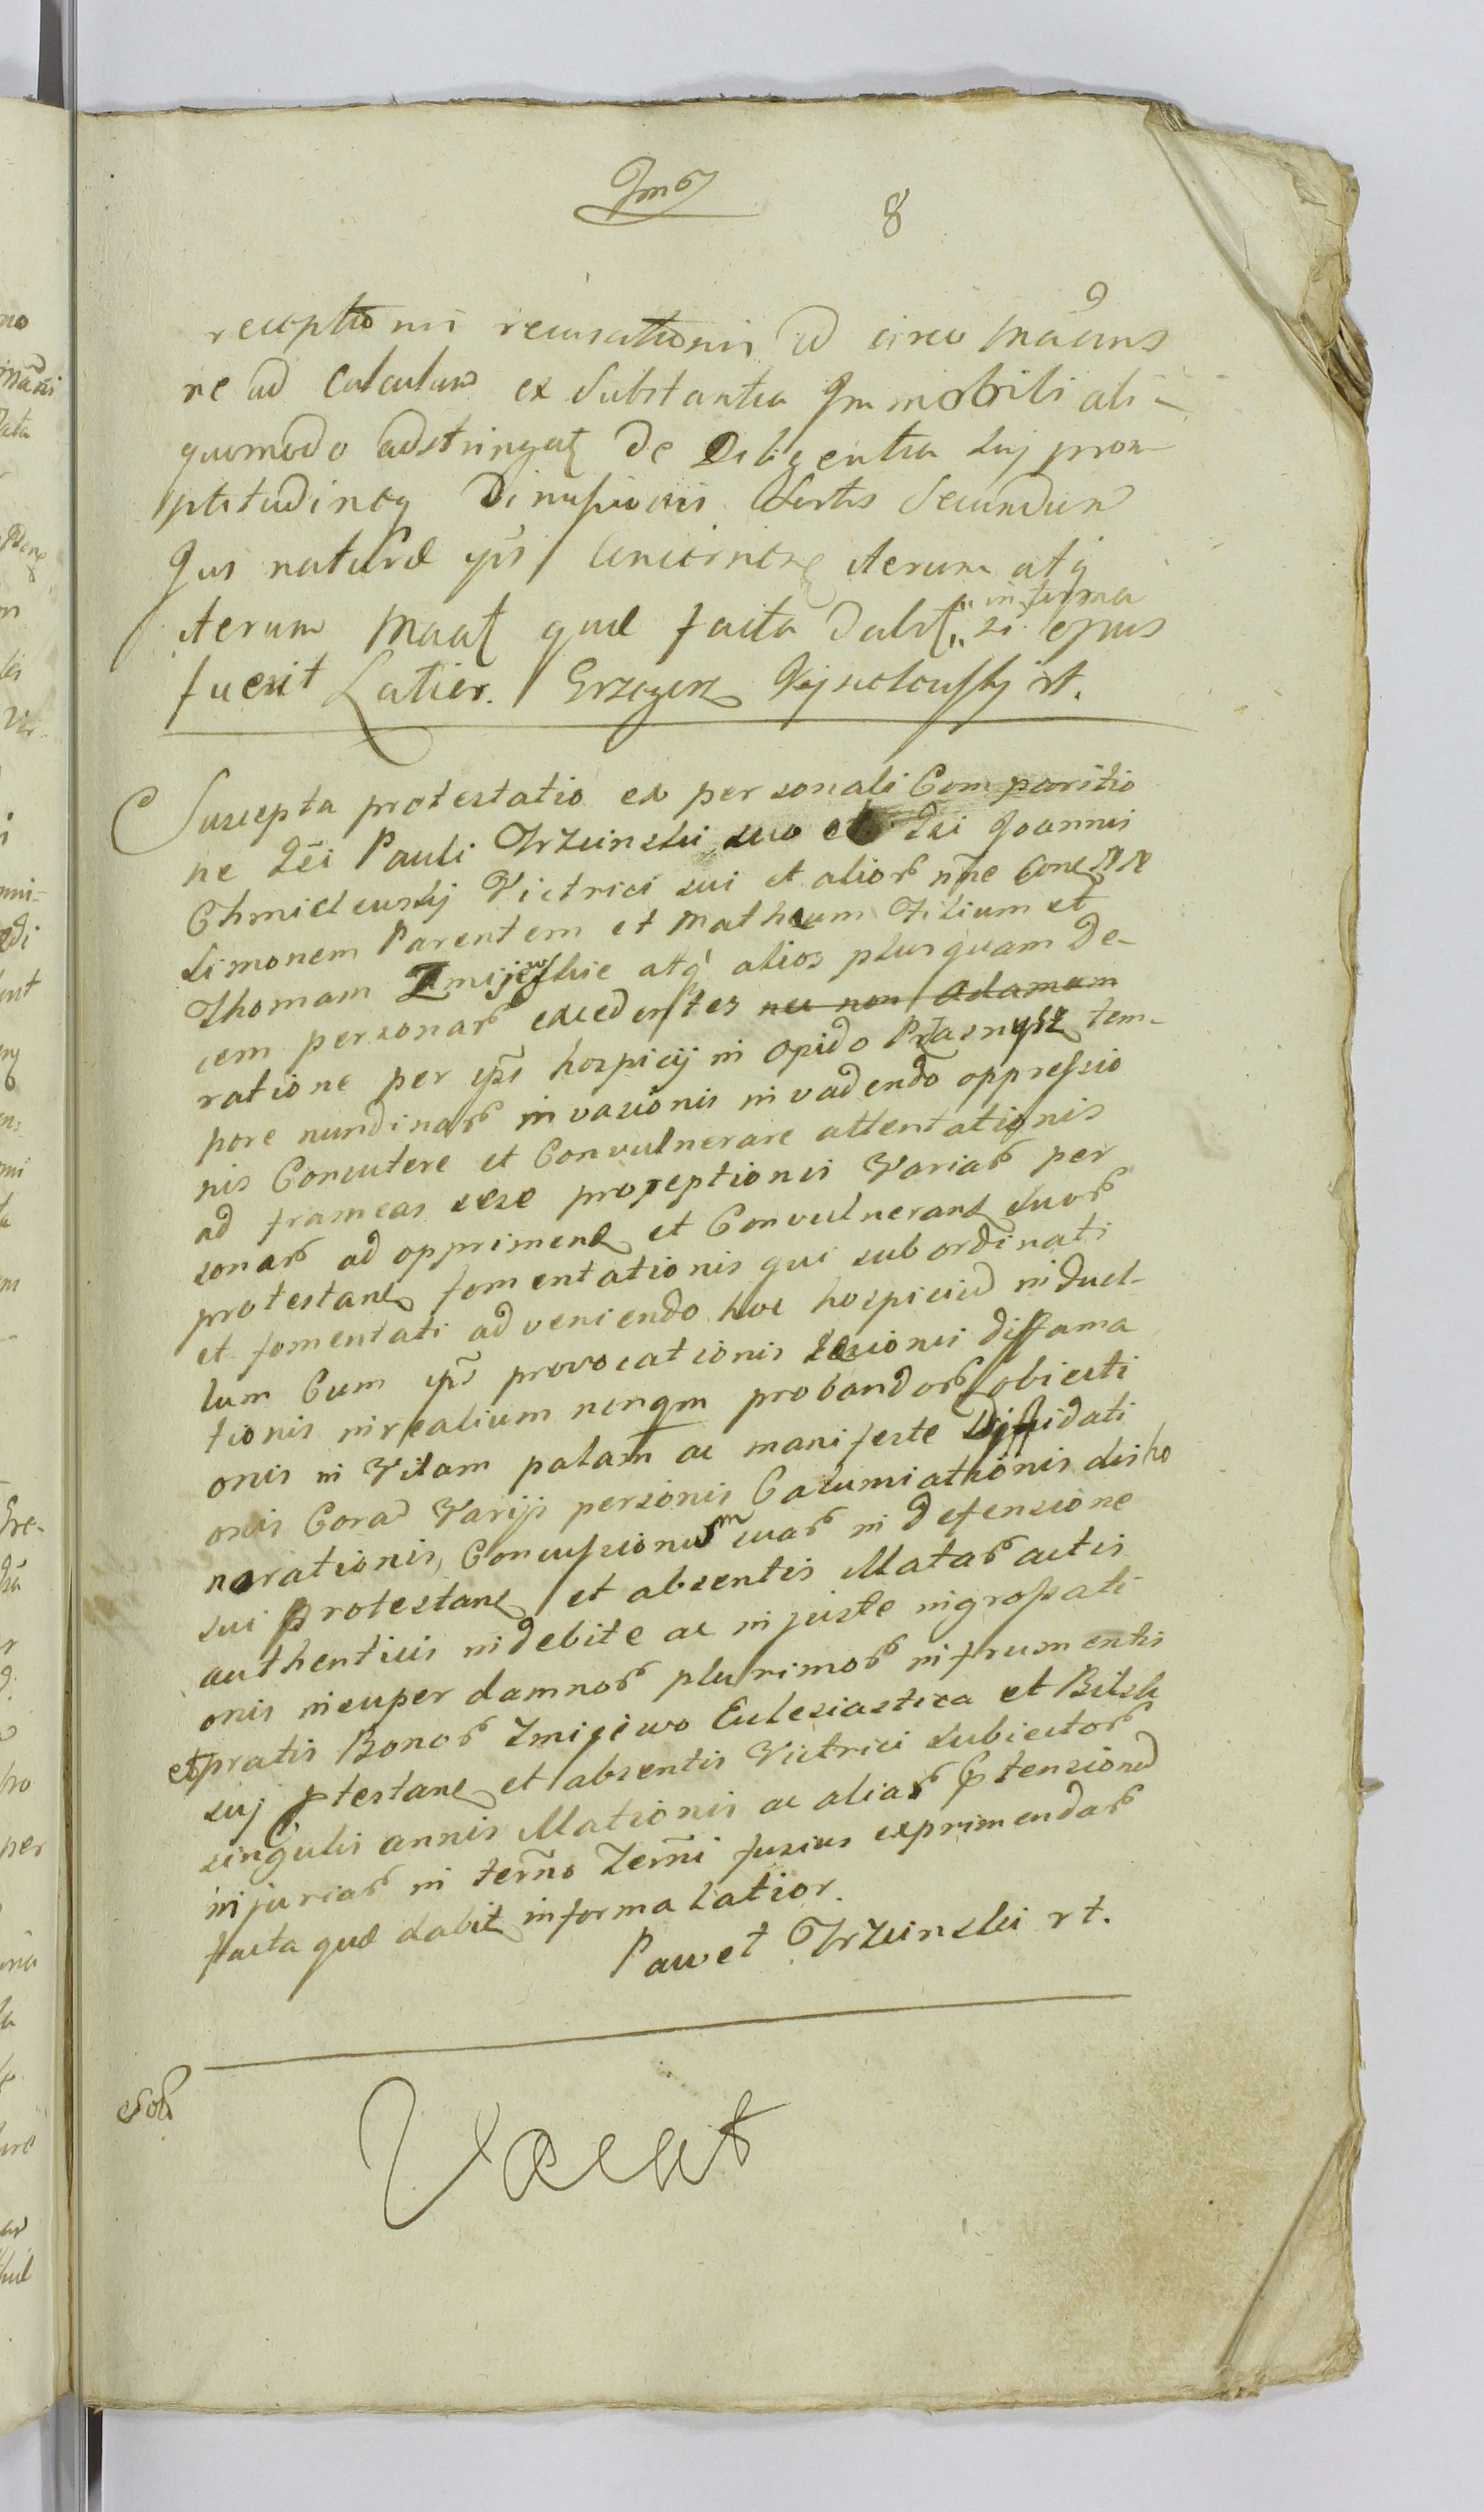 8
receptionis recusationis id circo
ne ad calculum ex substantia Immobili ali-
quomodo adstringat de Diligentia suj prom
ptitudineq Dimissionis sortis secundum
Jus naturæ iterum atq
in forma
iterum Maat quæ facta dabit si opus
fuerit Latior. Grzegorz rt.
Suscepta protestatio ex personali Comparitio
ne Pauli Trzcinski suo et Joannis
Chmielewskj Victrici sui et alior nne cone
Simonem Parentem et Matheum Filium et
Thomam Zmijewskie atq alios plusquam de-
cem personar excedentes nec non Adamum
ratione per ips hospicij in opido Prasnysz tem-
pore nundinar invasionis invadendo oppressio
nis Concutere et Convulnerare attentationis
ad frameas sese proreptionis Variar per
sonar ad opprimend et Convulnerand suor
protestans fomentationis qui subordinati
et fomentati adveniendo hoc hospicium induel-
lum Cum ips provocationis Lesionis diffama
tionis inrealium nunqm probandor obiecti
onis in Vitam palam ac manifeste Diffidati
onis Coram Varijs personis Calumiationis disho
norationis, Concussionum suar in defensione
sui protestans et absentis Illatar actis
authenticis indebite ac injuste ingrossati
onis insuper damnor plurimor infrumentis
et pratis Bonor Zmijewo Eclesiastica et
suj ptestans et absentis Victrici subiector
singulis annis Illationis ac aliar ptensionum
injuriar in terno Terni fusius exprimendar
facta quæ dabit informa Latior.
Paweł Trzcinski rt.
Vacat